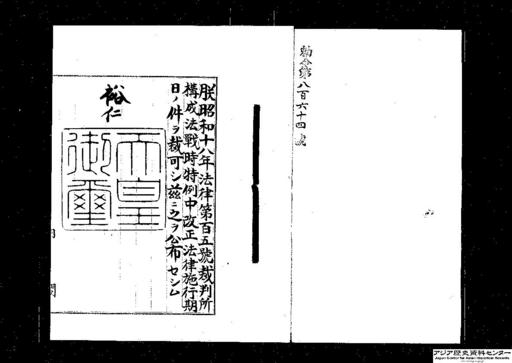 勅令第八百六十四號
朕昭和十八年法律第百五號裁判所
構成法戰時特例中改正法律施行期
日ノ件ヲ裁可シ茲ニ之ヲ公布セシム
裕仁
天皇
御璽
アジア歴史資料センター
Japan Center for Asian Historical Records